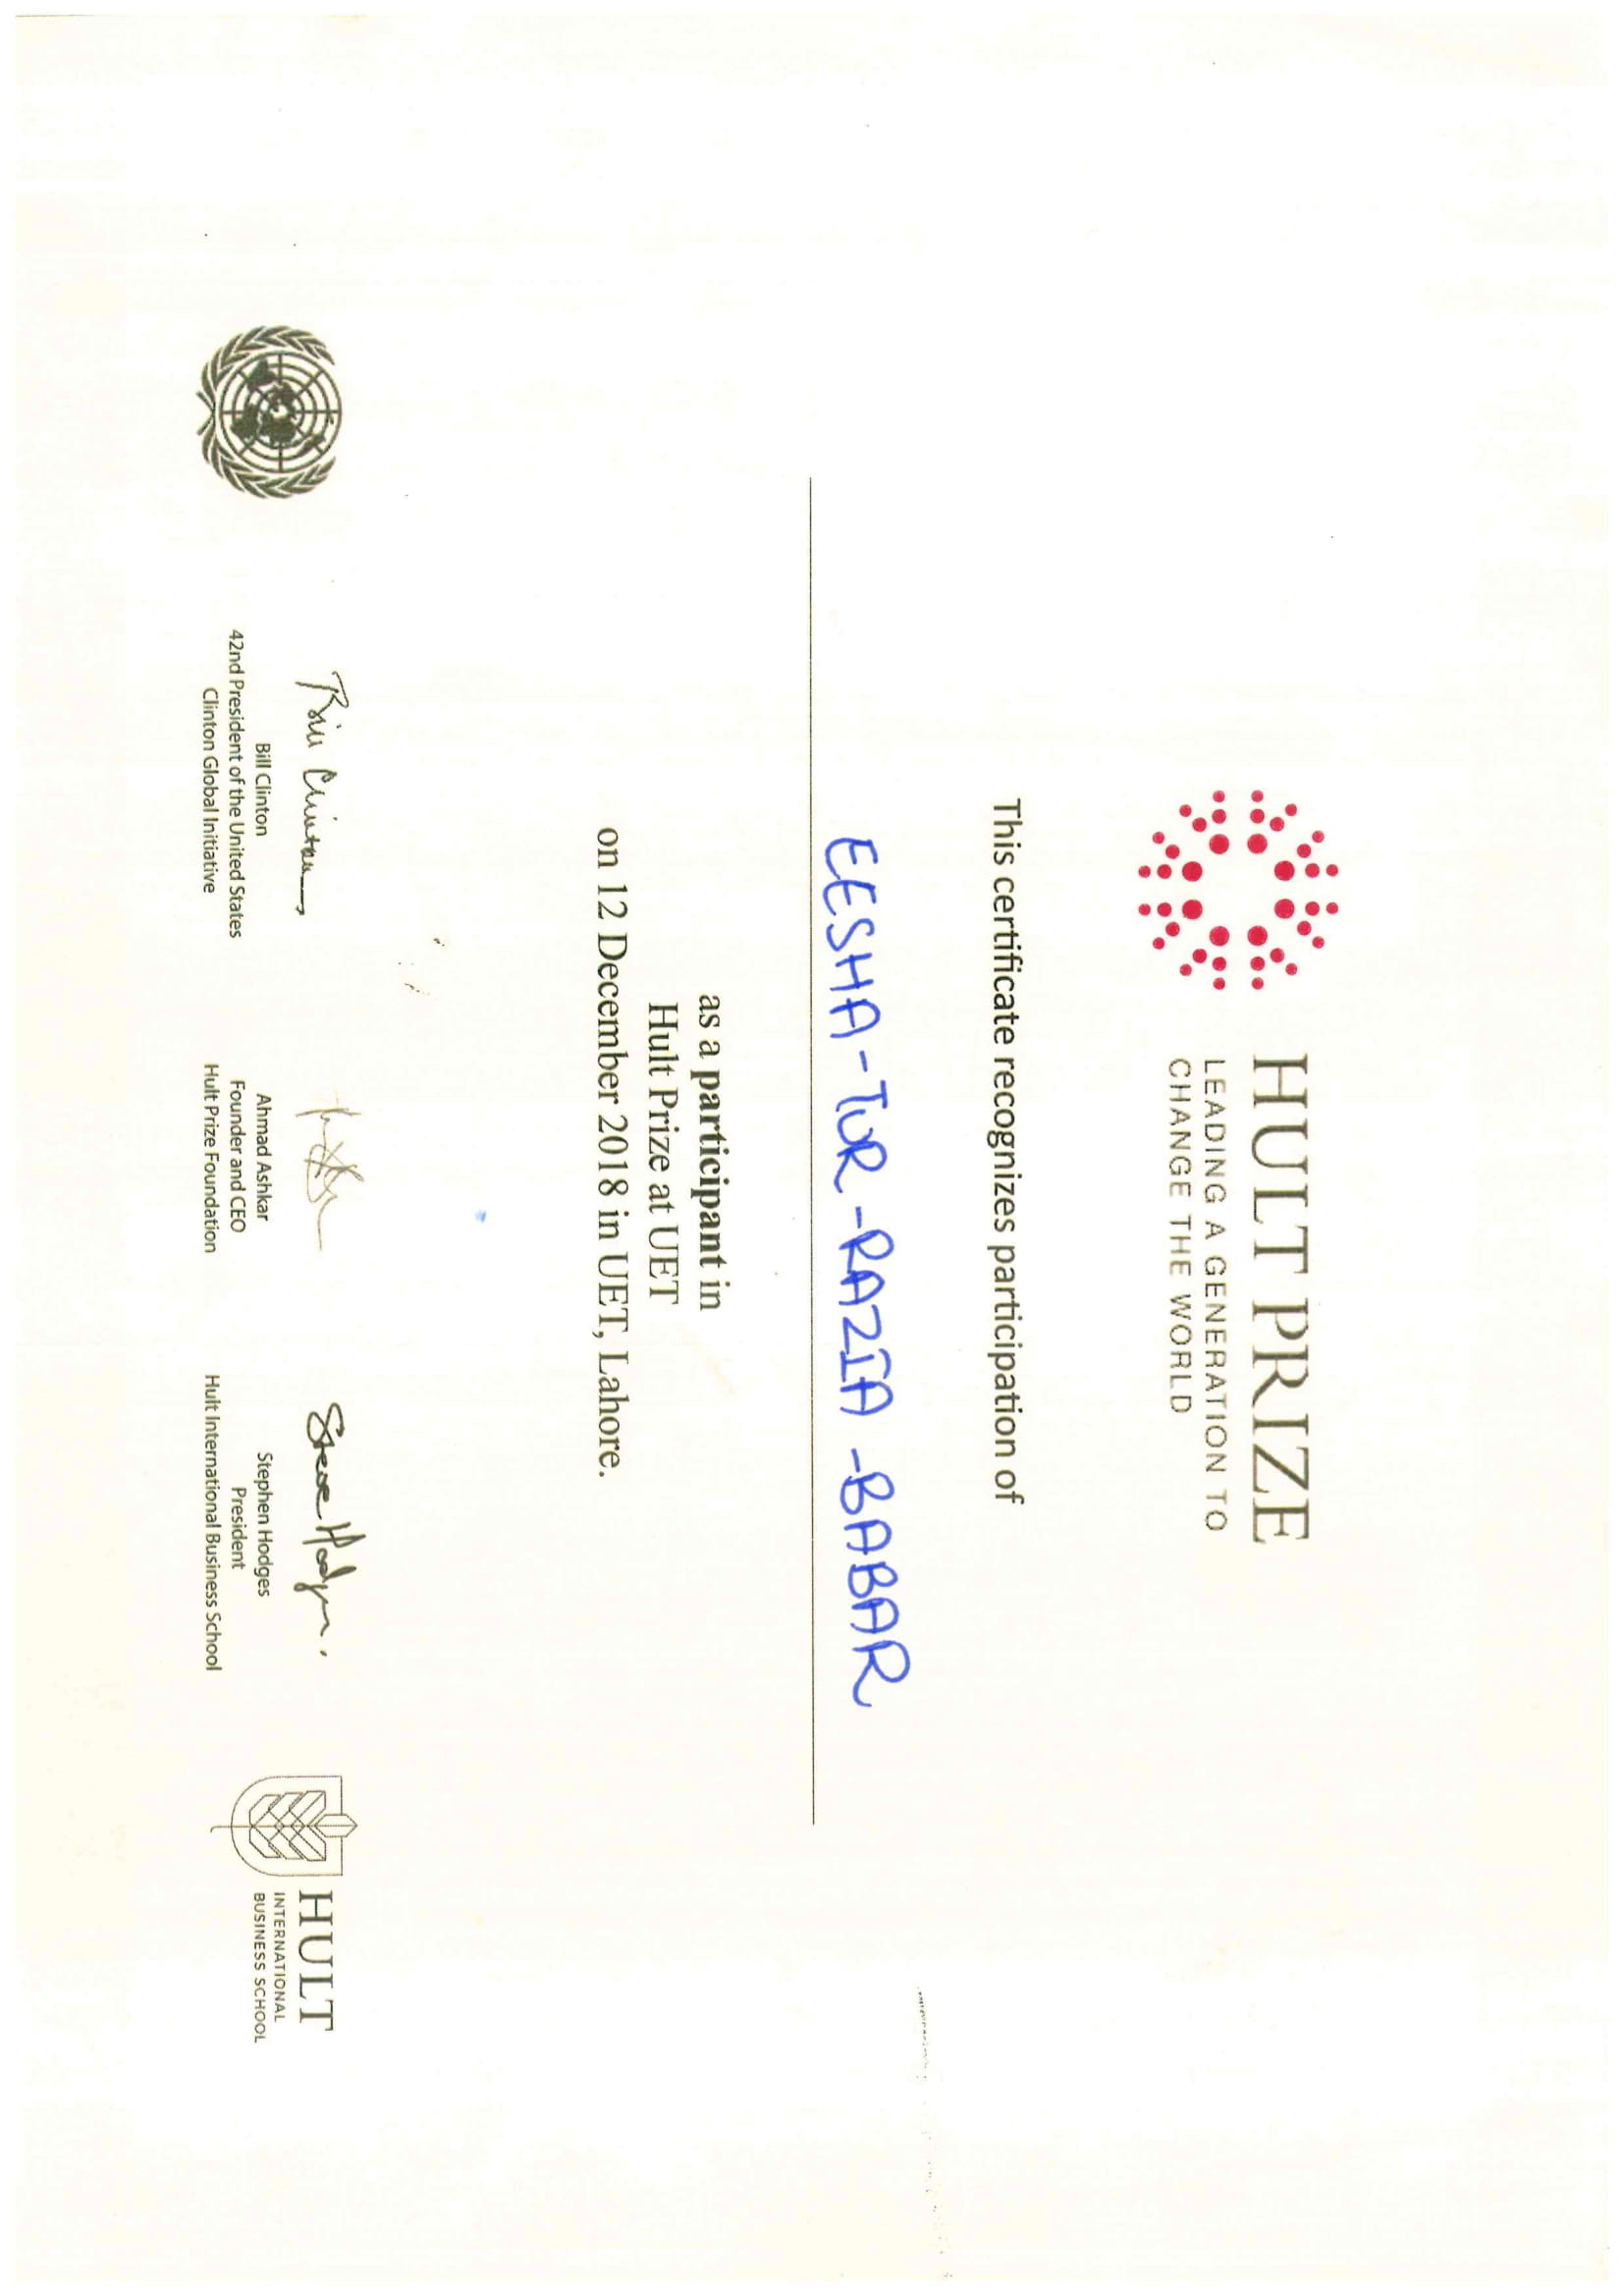 HULT PRIZE
LEADING A GENERATION TO
CHANGE THE WORLD
This certificate recognizes participation of
EESHA-TUR-RAZIA-BABAR
as a participant in
Hult Prize at UET
on 12 December 2018 in UET, Lahore.
Bill Clinton
Bill Clinton
42nd President of the United States
Clinton Global Initiative
Ahmad Ashkar
Founder and CEO
Hult Prize Foundation
Steve Hodges.
Stephen Hodges
President
Hult International Business School
HULT
INTERNATIONAL
BUSINESS SCHOOL